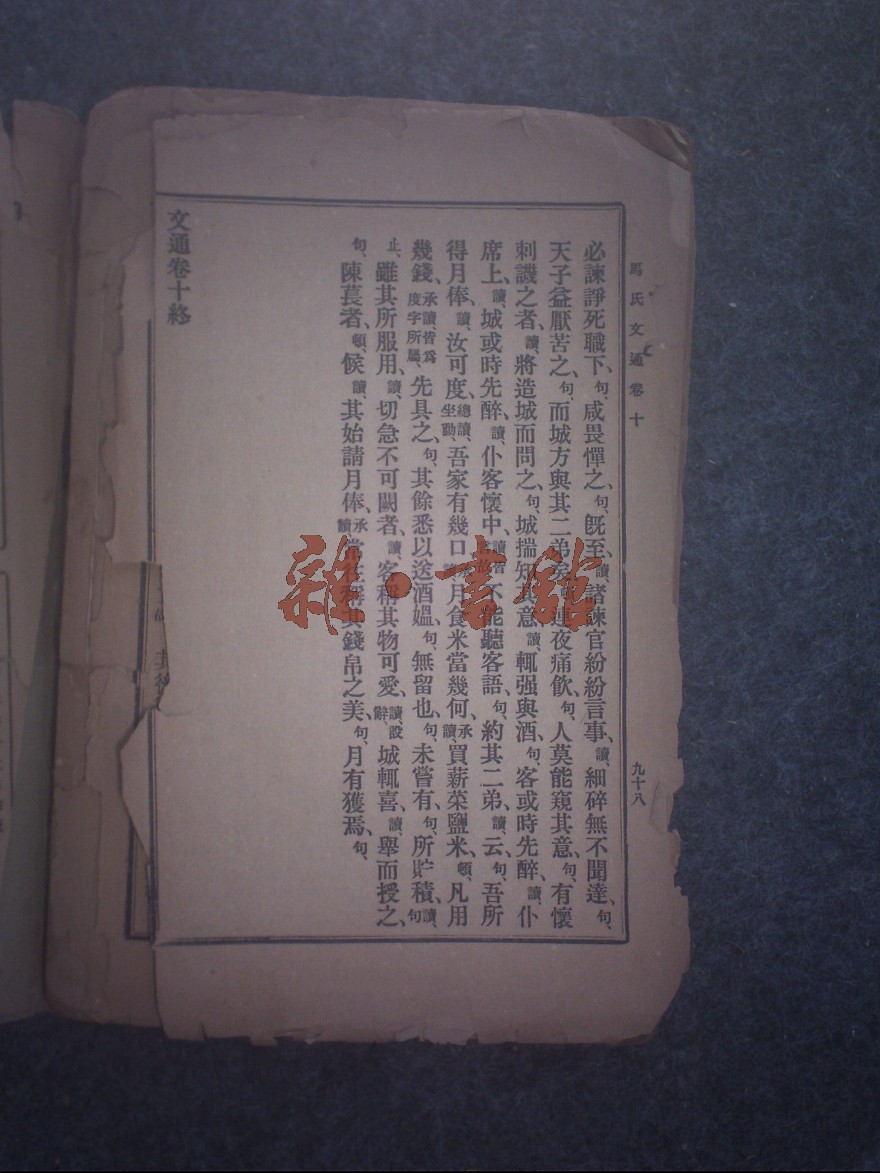 馬氏文通卷十
九十八
必諫諍死職下、句、咸畏憚之、句、旣至、讀、諸諫官紛紛言事、讀、細碎無不聞達、句、
天子益厭苦之、句、而城方與其二弟 連夜痛飲、句、人莫能窺其意、句、有懷
刺譏之者、讀、將造城而問之、句、城揣知其意、讀、輒强與酒、句、客或時先醉、讀、仆
席上、讀、城或時先醉、讀、仆客懷中、讀皆 不能聽客語、句、約其二弟、讀、云、句、吾所
得月俸、讀、汝可度、總讀、坐動、吾家有幾口、月食米當幾何、承讀、買薪菜鹽米、頓、凡用
幾錢、承讀、皆爲度字所屬、先具之、句、其餘悉以送酒媼、句、無留也、句、未嘗有、句、所貯積、讀、句
止、雖其所服用、讀、切急不可闕者、讀、客稱其物可愛、讀、設辭、城輒喜、讀、舉而授之、
句、陳萇者、頓、候、讀、其始請月俸、承讀、常往稱其錢帛之美、句、月有獲焉、句、
文通卷十終
雜·書館